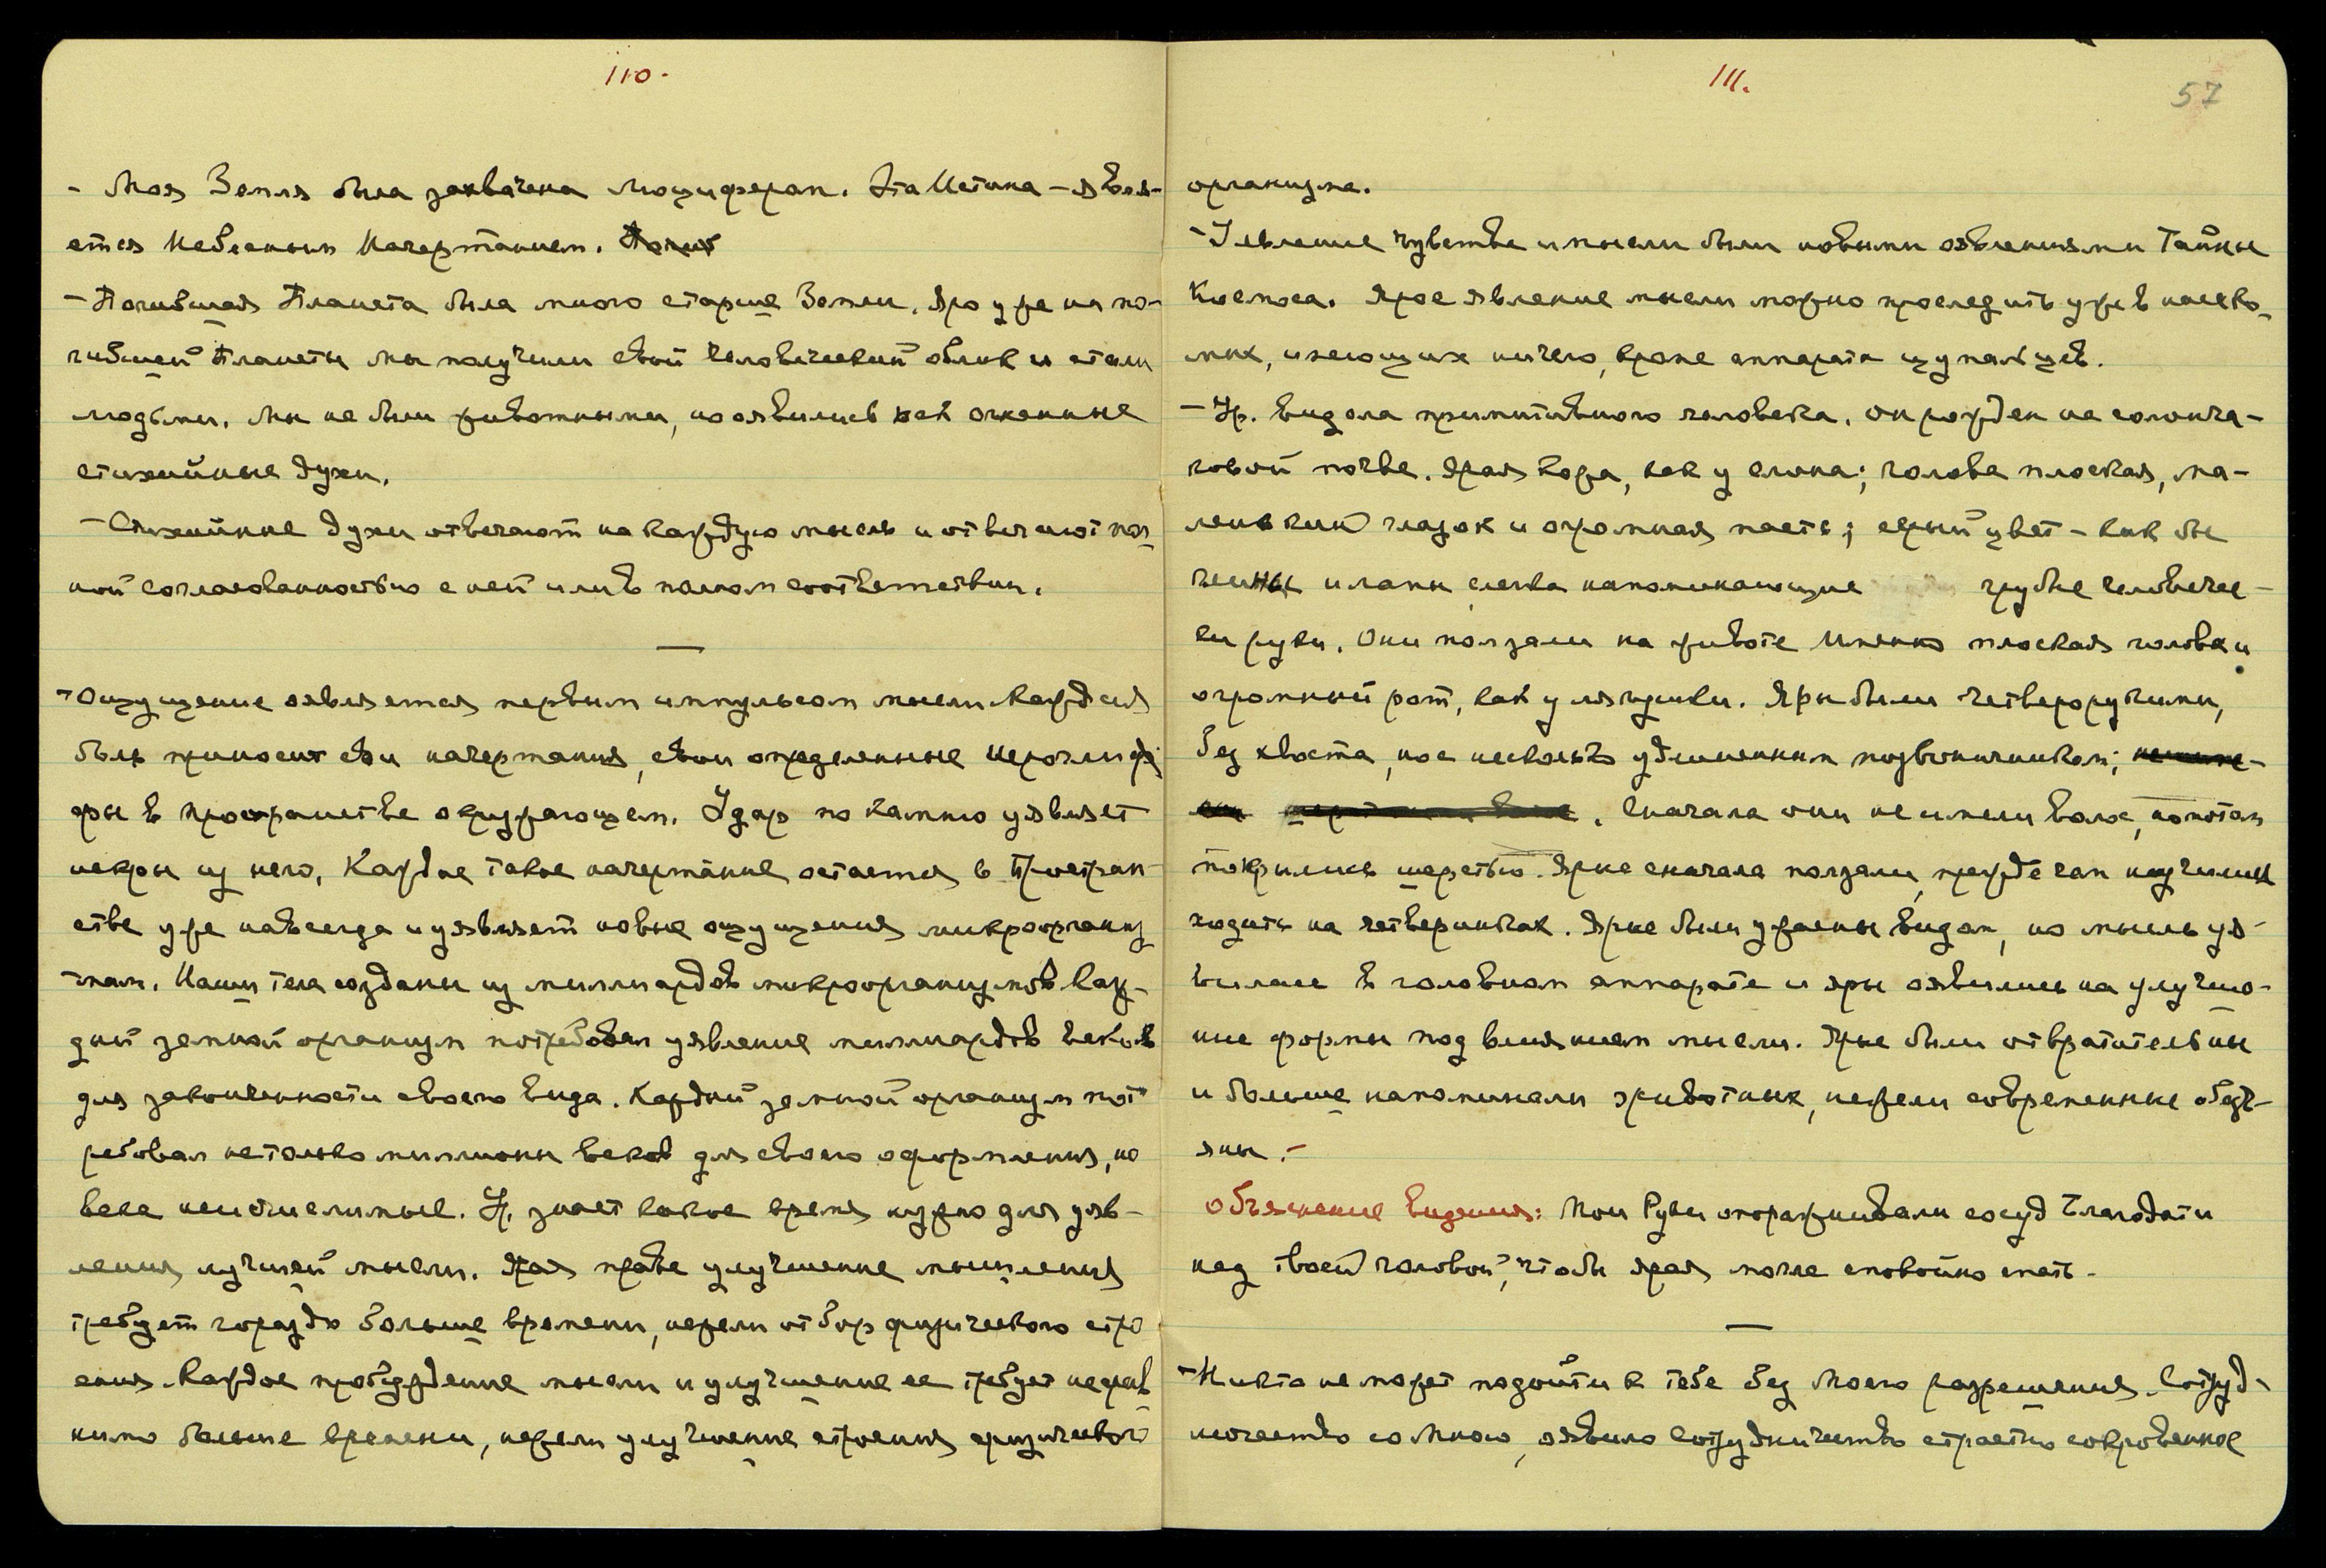 110.
- Моя Земля была захвачена Люцифером. Эта Истина - явля-
ется Небесным Начертанием.
- Погибшая Планета была много старше Земли. Яро уже на по-
гибшей Планеты мы получили свой человеческий облик и стали
людьми. Мы не были животными, но оявились как огненные
стихийные духи.
- Стихийные духи отвечают на каждую мысль и отвечают пол-
ной согласованностью с ней или в полном соответствии.
—
- Ощущение оявляется первым импульсом мысли. Каждая
боль приносит свои начертания, свои определенные иероглифы
в пространстве окружающем. Удар по камню уявляет
искры из него. Каждое такое начертание остается в Простран-
стве уже навсегда и уявляет новые ощущения микроорганиз-
мам. Наши тела созданы из миллиардов микроорганизмов. Каж-
дый земной организм потребовал уявление миллиардов веков
для законченности своего вида. Каждый земной организм пот-
ребовал не только миллионы веков для своего оформления, но
века неисчислимые. У. знает какое время нужно для уяв-
ления лучшей мысли. Ярая правде улучшение мышления
требует гораздо больше времени, нежели отбор физического стро
ения. Каждое пробуждение мысли и улучшение ее требует несрав
нимо больше времени, нежели улучшение строения физического
111.
57
организма.
- Уявление чувства и мысли были новыми оявлениями Тайны
Космоса. Ярое явление мысли можно проследить уже в насеко-
мых, имеющих ничего, кроме аппарата щупальцев.
- Ур. видела примитивного человека. Он рожден на солонча-
ковой почве. Ярая кожа, как у слона; голова плоская, ма-
ленький глазок и огромная пасть; серый цвет - как бы
глины и лапы слегка напоминающие грубые человечес-
ки руки. Они ползали на животе Имея плоская голова и
огромный рот, как у лягушки. Яры были четверорукими,
без хвоста, но с несколько удлиненным позвоночником;
. Сначала они не имели волос, но потом
покрылись шерстью. Ярые сначала ползали, прежде чем научились
ходить на четвериньках. Ярые были ужасны видом, но мысль уя-
вилась в головном аппарате и яры оявились на улучше-
ние формы под влиянием мысли. Ярые были отвратительны
и больше напоминали животных, нежели современные обезь-
яны. -
Объяснение видения: Мои Руки отораживали сосуд Благодати
над твоей головой, чтобы ярая могла спокойно спать -
—
- Никто не может подойти к тебе без Моего разрешения. Сотруд-
ничество со Мною, оявило сотрудничество страстно сокровенное